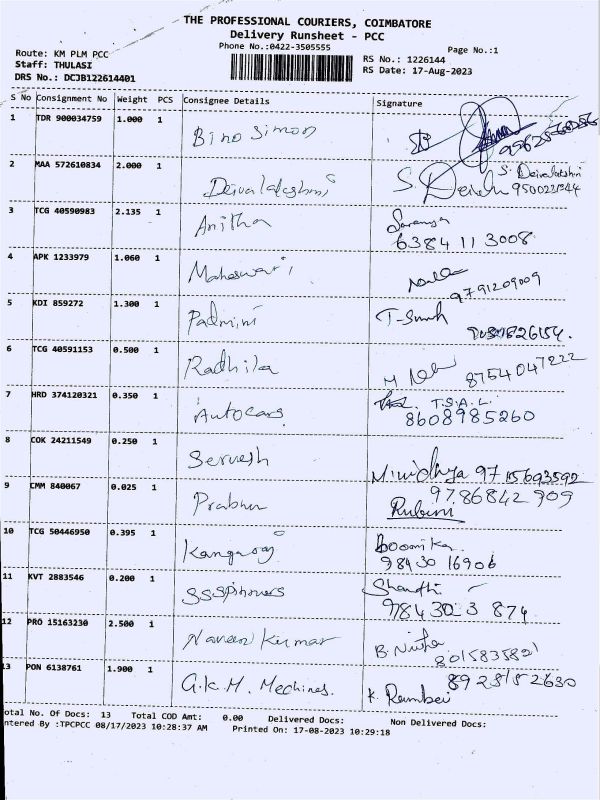 THE PROFESSIONAL COURIERS, COIMBATORE
Delivery Runsheet - PCC
Phone No.:0422-3505555
Page No.:1
Route: KM PLM PCC
Staff: THULASI
DRS No.: DCJB122614401
RS No.: 1226144
RS Date: 17-Aug-2023
S No Consignment No Weight PCS Consignee Details Signature
1 TDR 900034759 1.000 1 Bino Simon
2 MAA 572610834 2.000 1 Deivalakshmi S. Deivalakshmi
3 TCG 40590983 2.135 1 Anitha Saranya
6384113008
4 APK 1233979 1.060 1 Maheswari
9791209009
5 KDI 859272 1.300 1 Padmini
6 TCG 40591153 0.500 1 Radhika 8754047222
7 HRD 374120321 0.350 1 Autocars T.S.A.L.
8608985260
8 COK 24211549 0.250 1 Servesh 9715693592
9 CMM 840067 0.025 1 Prabhu 9786842909
Rubini
10 TCG 50446950 0.395 1 Kangaraj Boomika
98430 16906
11 KVT 2883546 0.200 1 SSSpinners Shanthi
12 PRO 15163230 2.500 1 Naveen Kumar B. Nisha
8015835821
13 PON 6138761 1.900 1 G.K.M. Mechines.
otal No. Of Docs: 13 Total COD Amt: 0.00 Delivered Docs: Non Delivered Docs:
ntered By :TPCPCC 08/17/2023 10:28:37 AM Printed On: 17-08-2023 10:29:18